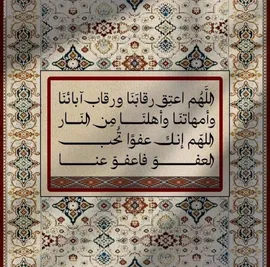 اللَّهم اعتِق رقابَنَا ورقاب آبائنَا
وأمهاتنَا وأهلنَا مِن النَار
اللهّم إنك عفوًا تُحب
العفو فاعفو عنا